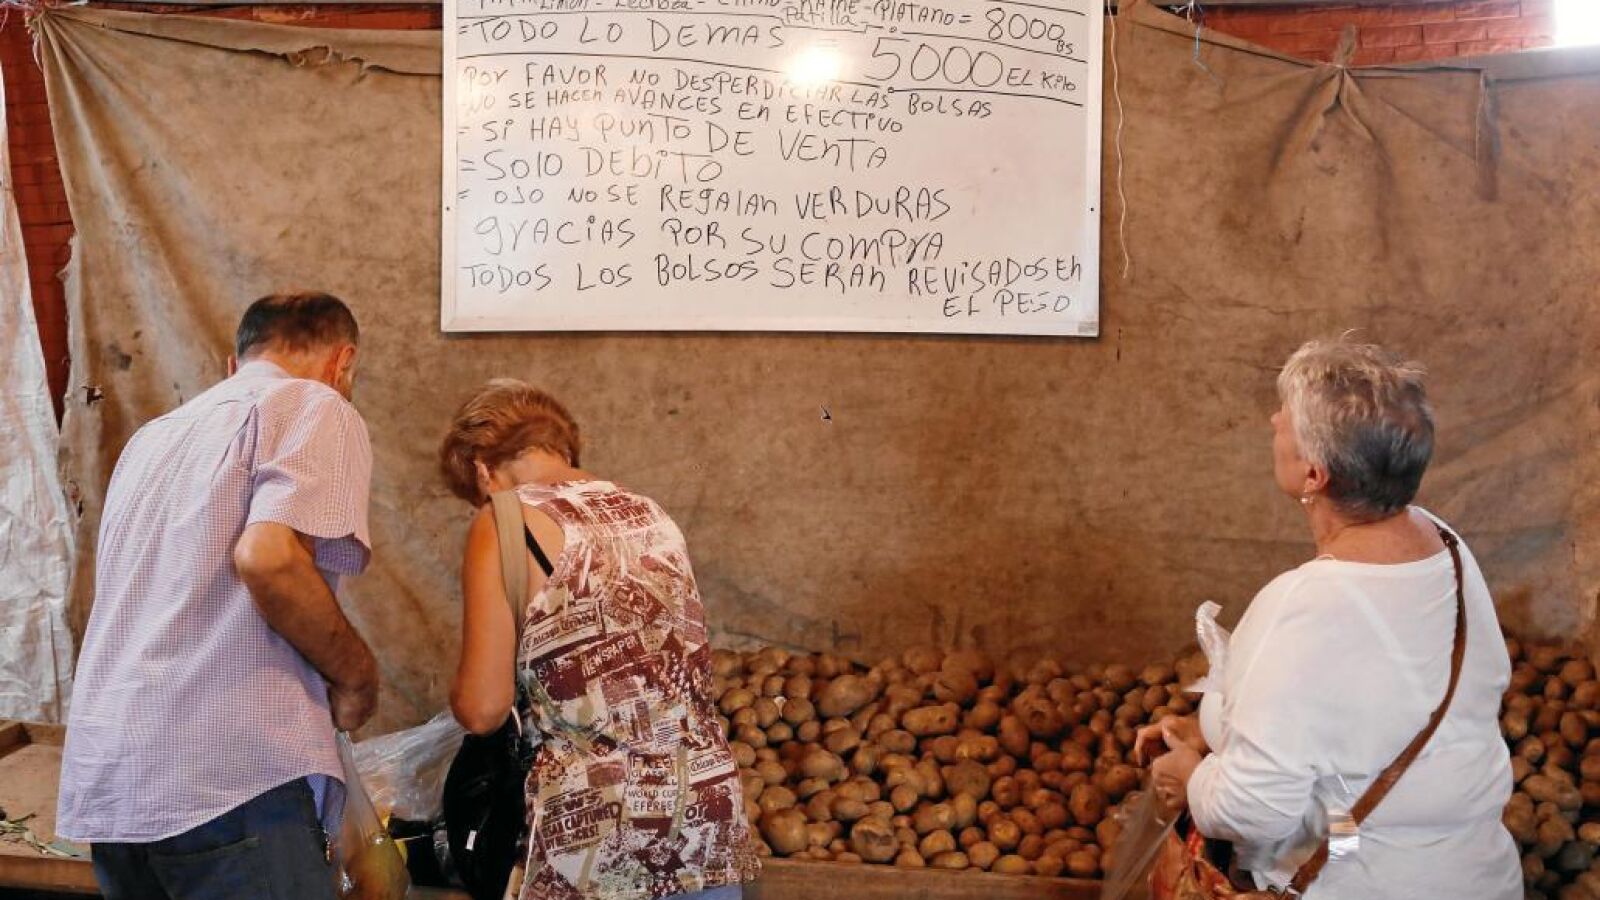 Limon - Lechosa - - ÑAME - PLATANO = 8000 Bs
Patilla
= TODO LO DEMAS = 5000 EL Kilo
POR FAVOR NO DESPERDICIAR LAS BOLSAS
- NO SE HACEN AVANCES EN EFECTIVO
= Si HAY PUNTO DE VENTA
= SOLO DEBITO
= OJO NO SE REGALAN VERDURAS
GRACIAS POR SU COMPRA
TODOS LOS BOLSOS SERAN REVISADOS EN
EL PESO
Chicago
NEWSPAPER
FREE
WORLD CUP
NEWS
CAPTURED